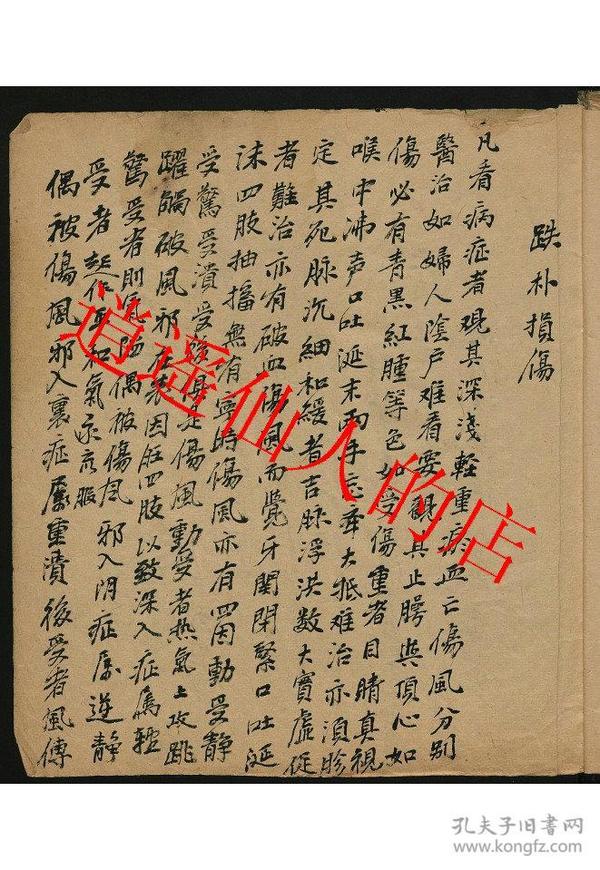 跌朴損傷
凡看病症者观其深淺輕重瘀血亡傷風分別
醫治如婦人陰戶难看要觀其上腭与頂心如
傷必有青黑紅腫等色如受傷重者目睛真視
喉中沸声口吐涎末两手忘牵大抵难治亦須胗
定其死脉沉細和緩者吉脉浮洪数大實虚促
者難治亦有破血傷風而覺牙関閉緊口吐涎
沫四肢抽搐無有寧時傷風亦有四因動受静
受驚受潰受傷風動受者热氣上攻跳
躍觸破風邪在表因在四肢以致深入症属輕
驚受者則氣陷偶被傷風邪入阴症屬逆静
受者起作和氣偶被傷風邪入裏症屬重潰後受者風傳
逍遥仙人的店
孔夫子旧書网
www.kongfz.com